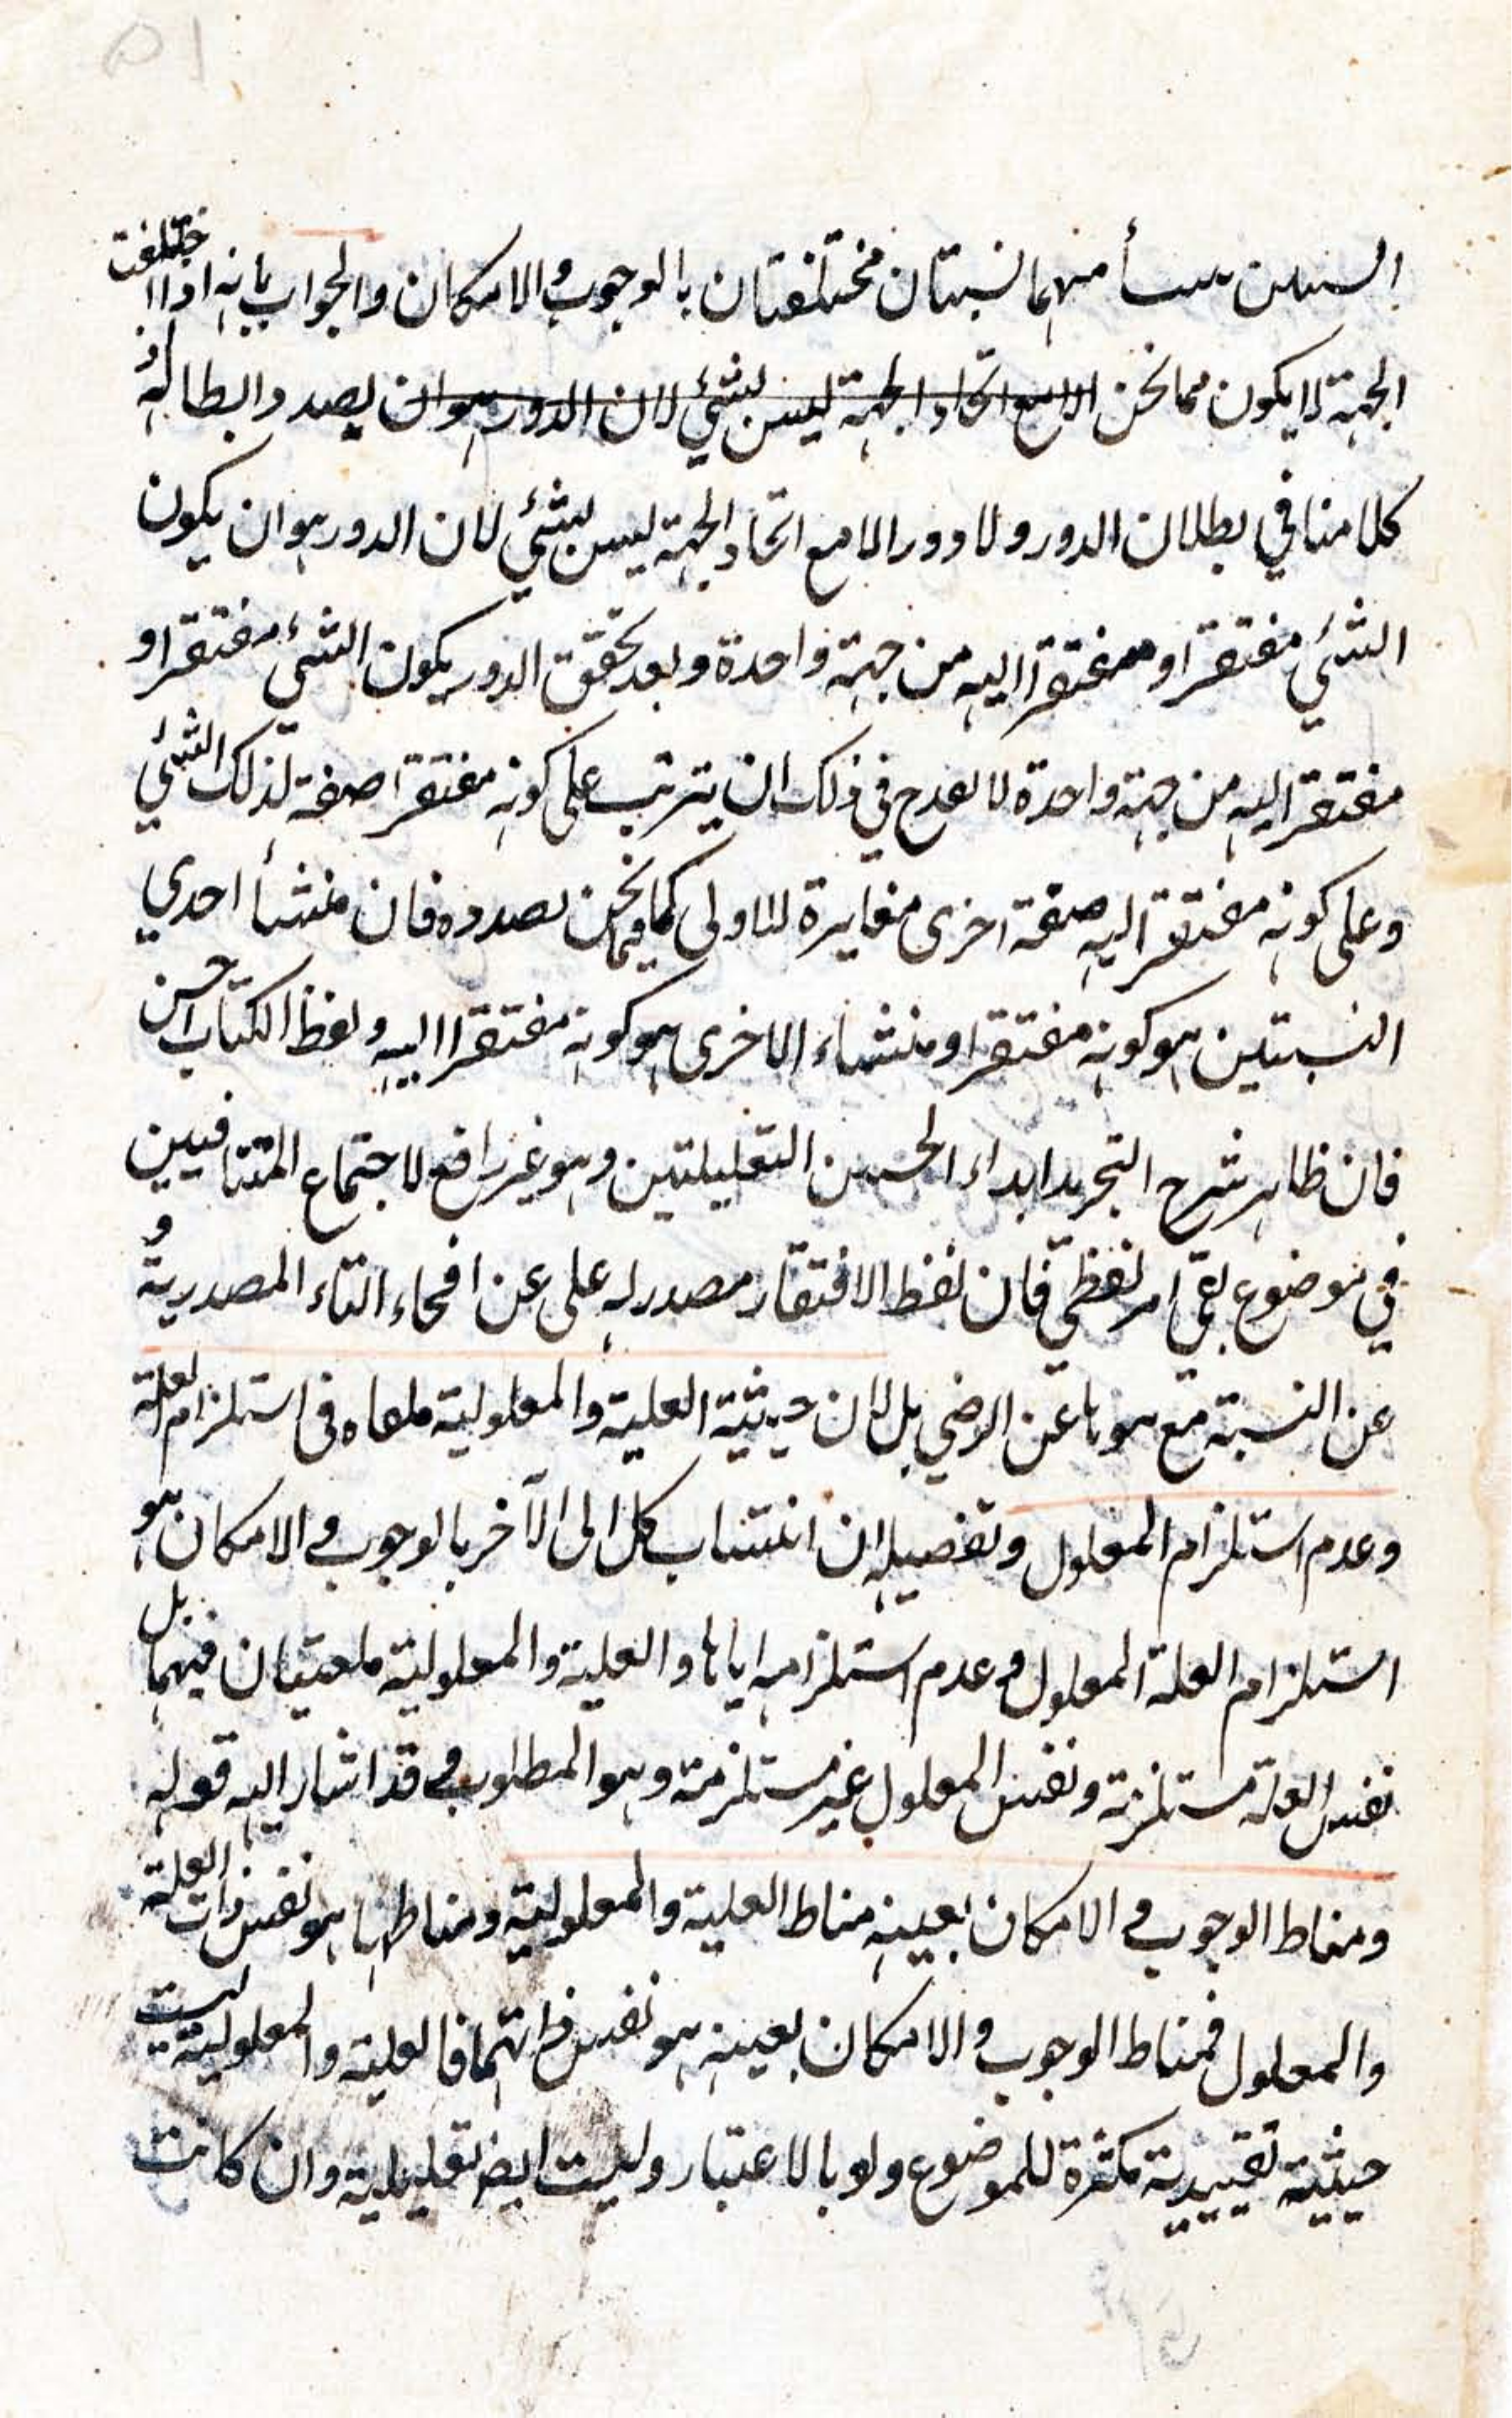 ٥١
منهما نسبتان مختلفتان بالوجوب والامكان والجواب بانه اذا اختلفت
الجهة لا يكون مما نحن الا مع اتحاد الجهة ليس بشئ لان الدور هو ان يصدد ابطاله اذ
كلامنا في بطلان الدور ولا دور الا مع اتحاد الجهة ليس بشئي لان الدور هو ان يكون
الشئي مفتقرا و مفتقرا اليه من جهة واحدة وبعد تحقق الدور يكون الشئ مفتقرا و
مفتقرا اليه من جهة واحدة لا يقدح في ذلك ان يترتب على كونه مفتقرا صفة لذلك الشئي
وعلى كونه مفتقرا اليه صفة اخرى مغايرة للاولى كما فيما نحن بصدده فان منشأ احدي
النسبتين هو كونه مفتقرا ومنشاء الاخرى هو كونه مفتقرا اليه ولفظ الكتاب احسن
فان ظاهر شرح التجريد ابداء الحيثيتين التعليليتين وهو غير رافع لاجتماع المتنافيين
في موضوع بقي امر لفظي فان لفظ الافتقار مصدر له على عن التاء المصدرية و
عن النسبة مع هو عن الرضي بل لان حيثية العلية والمعلولية ملغاه في استلزام العلة
وعدم استلزام المعلول وتفصيله ان انتساب كل الى الآخر بالوجوب والامكان هو
استلزام العلة المعلول وعدم استلزامه اياها والعلية والمعلولية ملغيتان فيهما بل
نفس العلة مستلزمة ونفس المعلول غير مستلزمة وهو المطلوب وقد اشار اليه قوله
ومناط الوجوب والامكان بعينه مناط العلية والمعلولية ومناطها هو نفس ذات العلة
والمعلول فمناط الوجوب والامكان بعينه هو نفس ذاتهما فالعلية والمعلولية ليست
حيثية تقييدية مكثرة للموضوع ولو بالاعتبار وليست ايضا تعليلية وان كانت